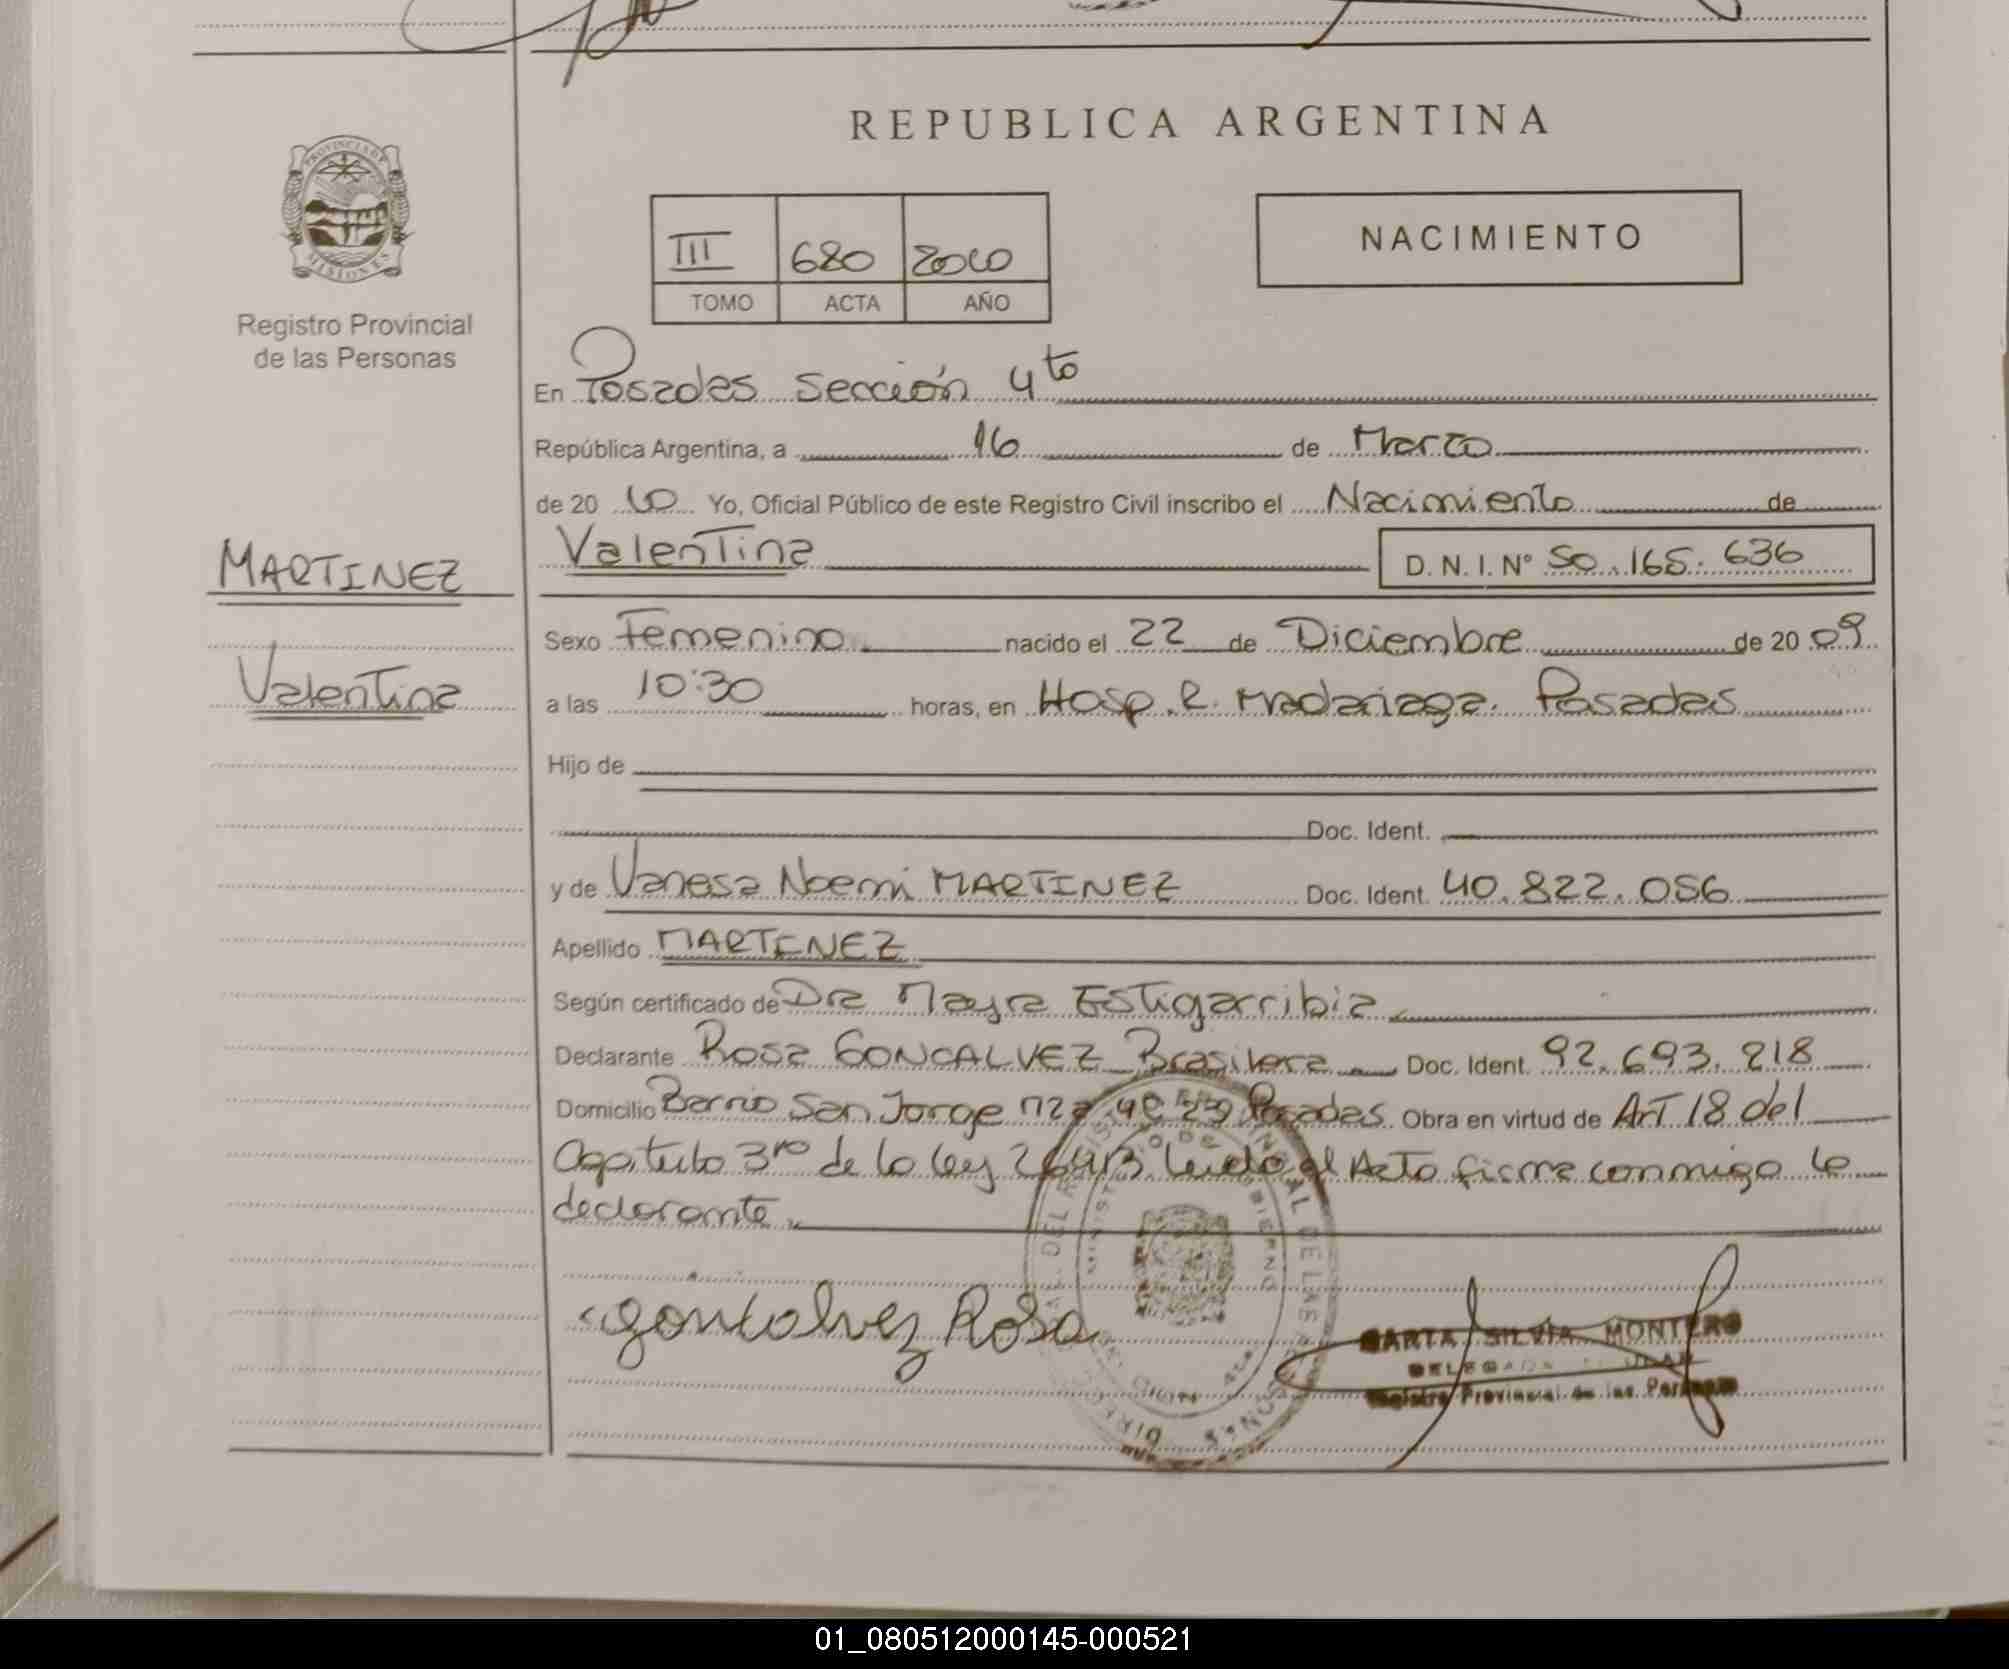 REPUBLICA ARGENTINA
PROVINCIA DE
MISIONES
Registro Provincial
de las Personas
III 680 2010
TOMO ACTA AÑO
NACIMIENTO
En Posadas Sección 4to
República Argentina, a 16 de Marzo
de 20 10 Yo, Oficial Público de este Registro Civil inscribo el Nacimiento de
MARTINEZ
Valentina
Valentina D. N. I. Nº 50.165.636
Sexo Femenino nacido el 22 de Diciembre de 20 09
a las 10:30 horas, en Hosp. R. Madariaga. Posadas
Hijo de
Doc. Ident.
y de Vanesa Noemi MARTINEZ Doc. Ident. 40.822.056
Apellido MARTINEZ
Según certificado de Dra Mayra Estigarribia
Declarante Rosa GONCALVEZ Brasilera Doc. Ident. 92.693.218
Domicilio Barrio San Jorge Mza 49 Posadas Obra en virtud de Art 18 del
Capitulo 3ro de la ley 26413 Leido el Acto firma conmigo la
declarante
Gontalvez Rosa
SILVIA MONTERO
DELEGADA
Registro Provincial de las Personas
01_080512000145-000521